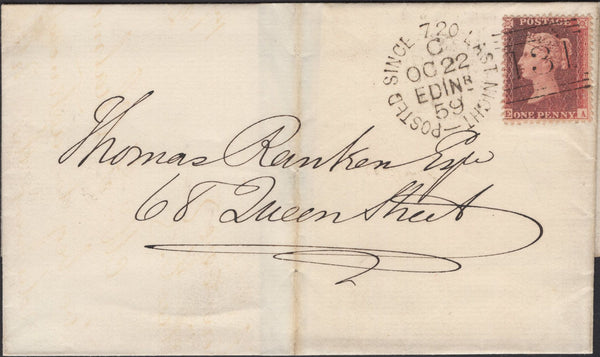 POSTED SINCE 7.20 LAST NIGHT
C
OC 22
EDINR
59
POSTAGE
131
E A
ONE PENNY
Thomas Ranken Esqe
68 Queen Street